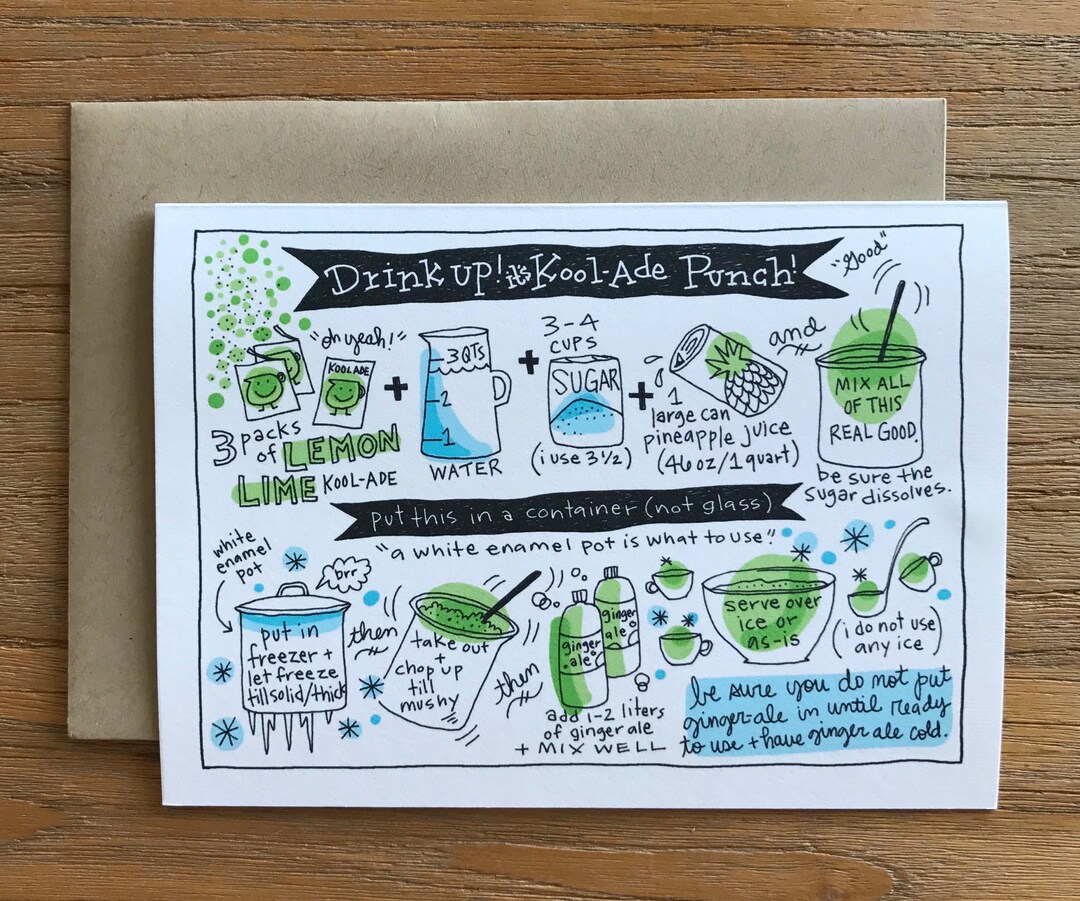 Drink up! it's Kool-Ade Punch!
"Good"
"oh yeah!"
KOOLADE
3 packs
of LEMON
LIME KOOL-ADE
+
3 QTS
2
1
WATER
+
3-4
CUPS
SUGAR
(i use 3½)
+
1
large can
pineapple juice
(46 oz/1 quart)
and
MIX ALL
OF THIS
REAL GOOD.
be sure the
Sugar dissolves.
put this in a container (not glass)
"a white enamel pot is what to use."
white
enamel
pot
brr
put in
freezer +
let freeze
till solid/thick
then
take out
+
chop up
till
mushy
then
ginger
ale
ginger
ale
add 1-2 liters
of ginger ale
+ MIX WELL
serve over
ice or
as-is
(i do not use
any ice)
be sure you do not put
ginger-ale in until ready
to use + have ginger ale cold.